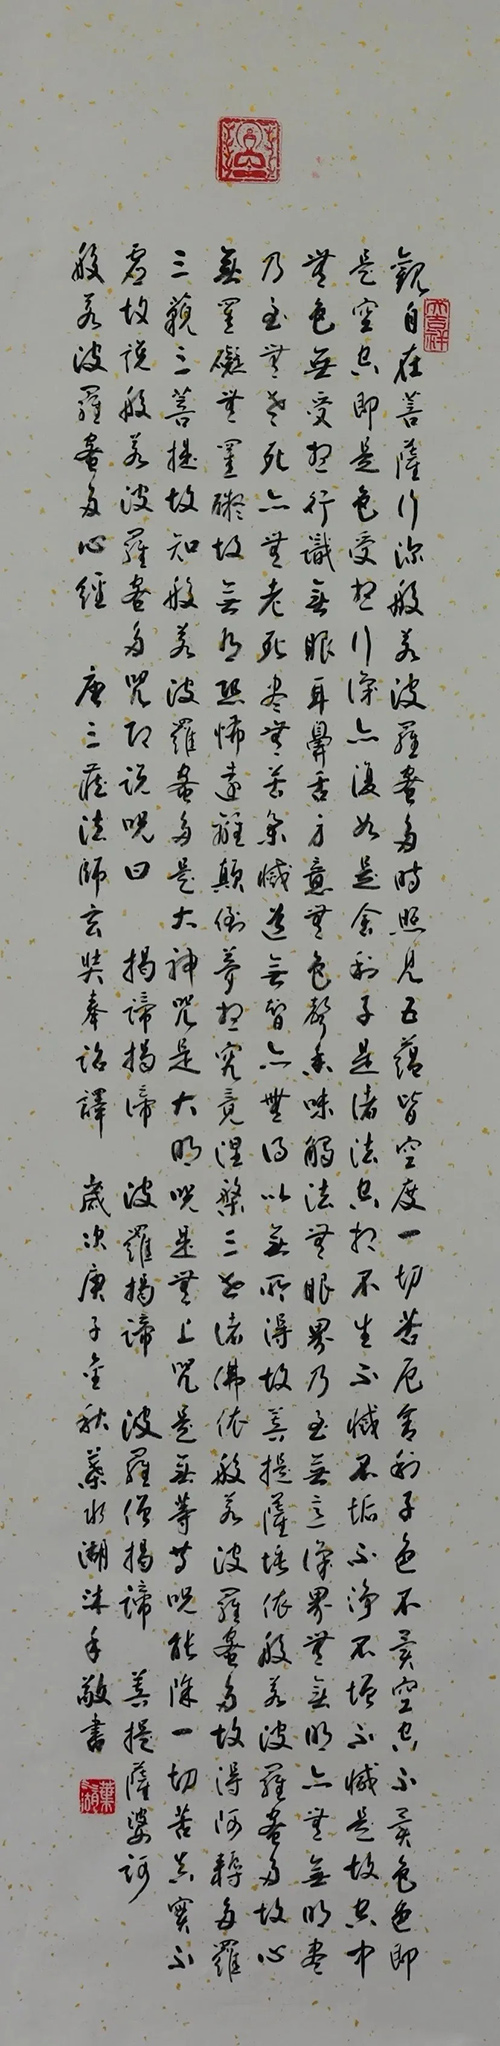 觀自在菩薩行深般若波羅蜜多時照見五蘊皆空度一切苦厄舍利子色不異空空不異色色即
是空空即是色受想行識亦復如是舍利子是諸法空相不生不滅不垢不淨不增不減是故空中
無色無受想行識無眼耳鼻舌身意無色聲香味觸法無眼界乃至無意識界無無明亦無無明盡
乃至無老死亦無老死盡無苦集滅道無智亦無得以無所得故菩提薩埵依般若波羅蜜多故心
無罣礙無罣礙故無有恐怖遠離顛倒夢想究竟涅槃三世諸佛依般若波羅蜜多故得阿耨多羅
三藐三菩提故知般若波羅蜜多是大神咒是大明咒是無上咒是無等等咒能除一切苦真實不
虛故說般若波羅蜜多咒即說咒曰 揭諦揭諦 波羅揭諦 波羅僧揭諦 菩提薩婆訶
般若波羅蜜多心經 唐三藏法師玄奘奉詔譯 歲次庚子金秋葉水湖沐手敬書
大吉祥